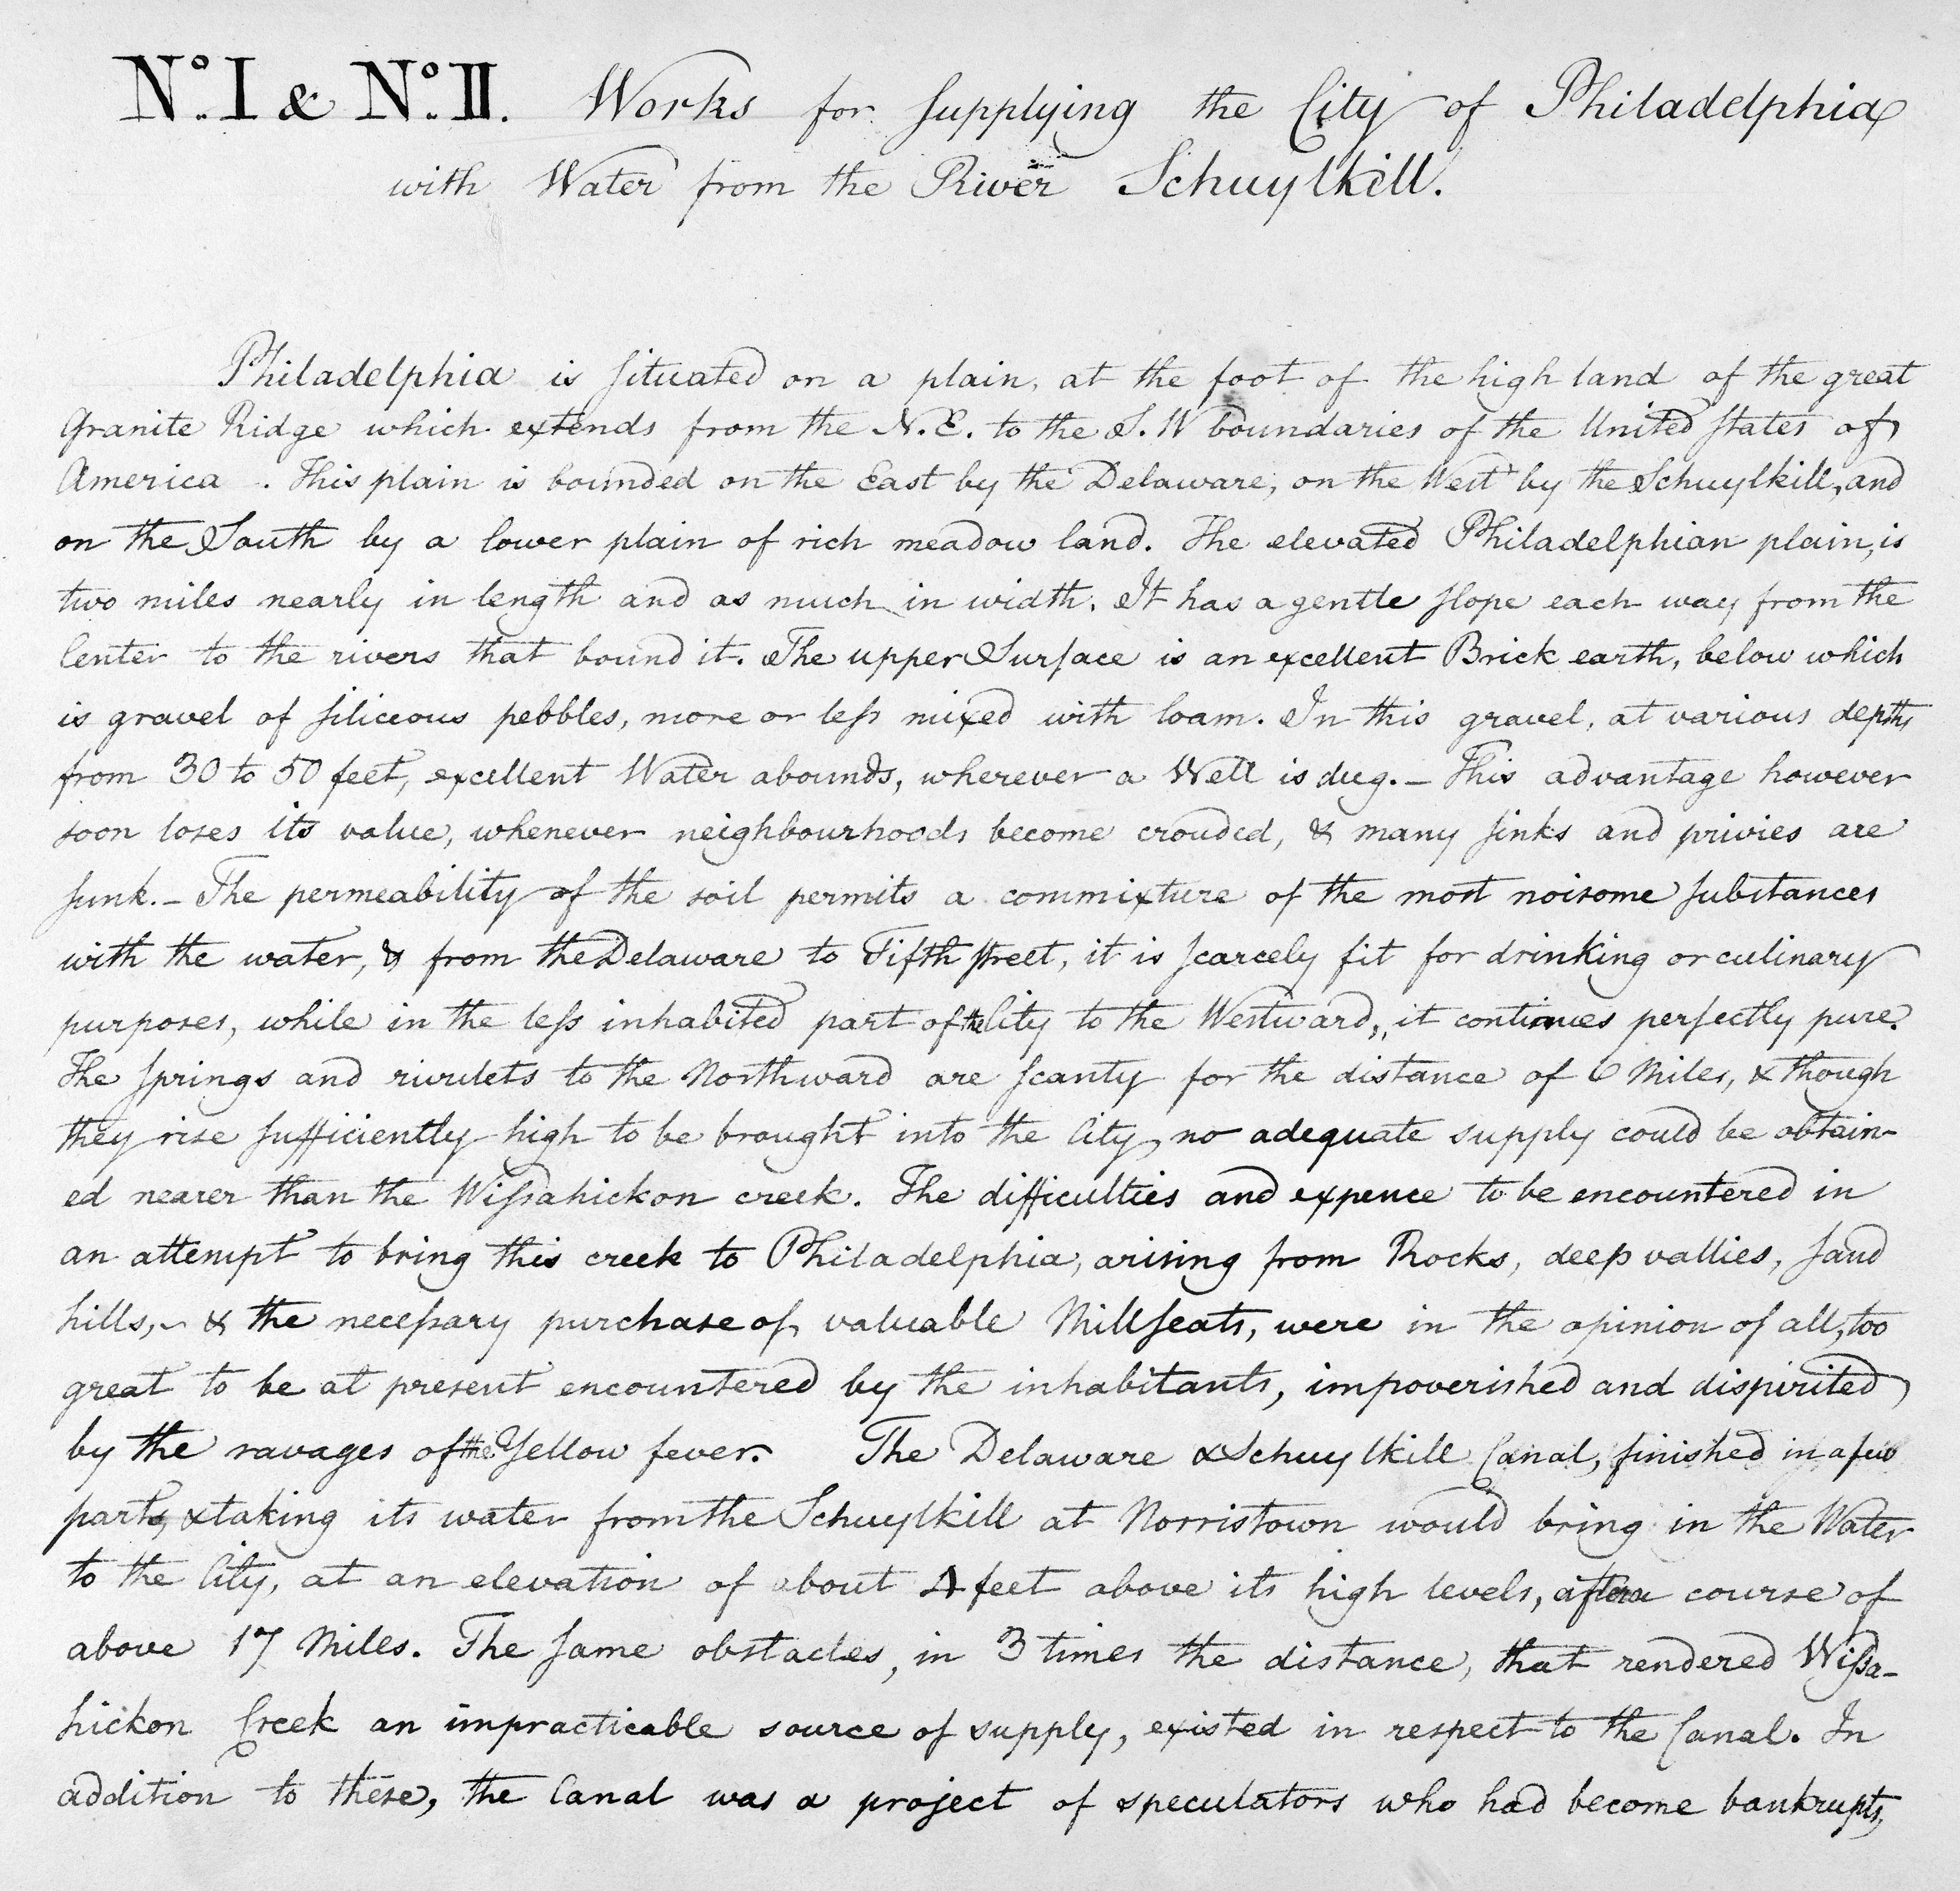 No. I & No. II. Works for supplying the City of Philadelphia
with Water from the River Schuylkill.
Philadelphia is situated on a plain, at the foot of the high land of the great
Granite Ridge which extends from the N.E. to the S.W boundaries of the United States of
America. This plain is bounded on the East by the Delaware, on the West by the Schuylkill, and
on the South by a lower plain of rich meadow land. The elevated Philadelphian plain, is
two miles nearly in length and as much in width. It has a gentle slope each way from the
Center to the rivers that bound it. The upper Surface is an excellent Brick earth, below which
is gravel of siliceous pebbles, more or less mixed with loam. In this gravel, at various depths
from 30 to 50 feet, excellent Water abounds, wherever a Well is dug. – This advantage however
soon loses its value, whenever neighbourhoods become crouded, & many sinks and privies are
sunk. – The permeability of the soil permits a commixture of the most noisome substances
with the water, & from the Delaware to Fifth street, it is scarcely fit for drinking or culinary
purposes, while in the less inhabited part of the City to the Westward, it continues perfectly pure.
The springs and rivulets to the Northward are scanty for the distance of 6 Miles, & though
they rise sufficiently high to be brought into the City, no adequate supply could be obtain-
ed nearer than the Wissahickon creek. The difficulties and expence to be encountered in
an attempt to bring this creek to Philadelphia, arising from Rocks, deep vallies, sand
hills, – & the necessary purchase of valuable Millseats, were in the opinion of all, too
great to be at present encountered by the inhabitants, impoverished and dispirited
by the ravages of the Yellow fever. The Delaware & Schuylkill Canal, finished in a few
parts, & taking its water from the Schuylkill at Norristown would bring in the Water
to the City, at an elevation of about 4 feet above its high levels, after a course of
above 17 Miles. The same obstacles, in 3 times the distance, that rendered Wissa-
hickon Creek an impracticable source of supply, existed in respect to the Canal. In
addition to these, the Canal was a project of speculators who had become bankrupts,